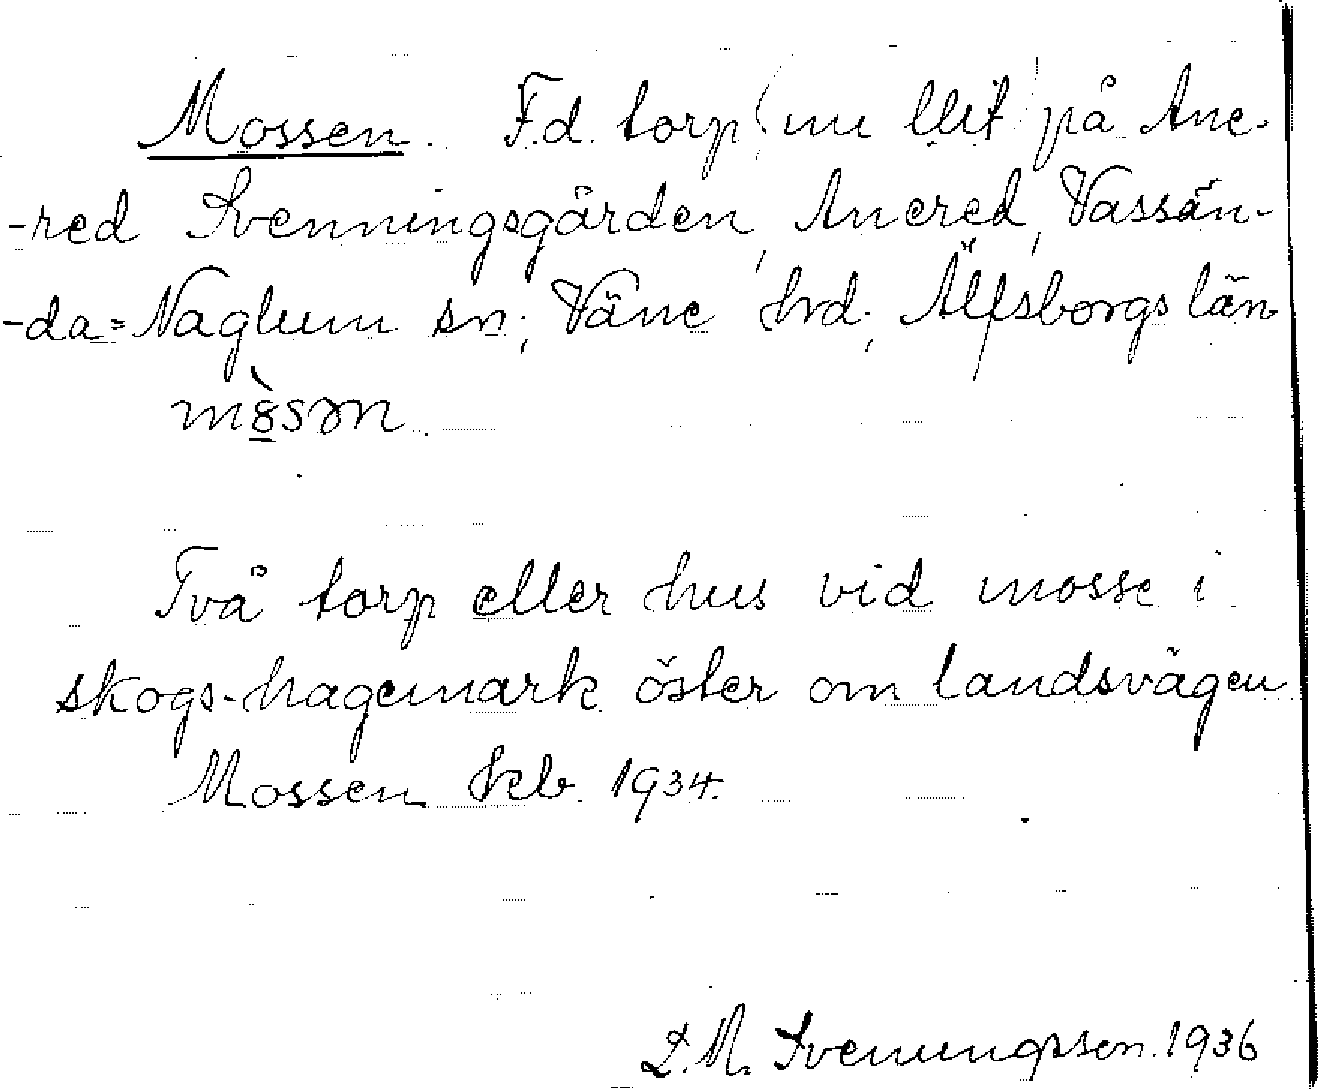 Mossen. F.d. torp (nu lht) på Ane-
-red Svenningsgården, Anered, Vassän-
-da-Naglum sn; Väne hrd; Älfsborgs län
Två torp eller hus vid mosse i
skogs-hagemark öster om landsvägen
Mossen kb. 1934.
D. M. Svenungsson. 1936